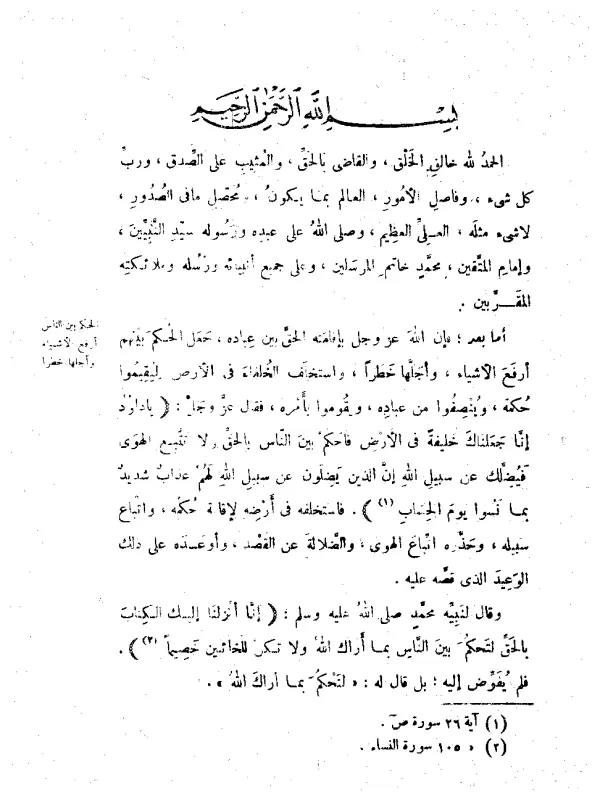 بسم الله الرحمن الرحيم
الحمدُ لله خالقِ الخَلْق ، والقاضى بالحَقِّ ، والمُثيب على الصِّدق ، وربِّ
كل شىء ، وفاصلِ الأمُورِ ، العالم بما يكونُ ، ومُحَصِّل مافى الصُّدُورِ ،
لاشىء مثلَه ، العلىِّ العظيم ، وصلى اللهُ على عبده ورَسُوله سيِّد النَّبِيِّينَ ،
وإمامِ المتَّقين ، محمَّدٍ خاتم المرسَلين ، وعلى جميع أنبيائه ورُسُله وملائكته
المقرَّبين .
أما بعد ؛ فإن اللهَ عز وجل بإقامَته الحقَّ بين عِباده ، جَعَل الحُكمَ بَيْنهم
أرفعَ الأشياء ، وأجَلَّها خَطَراً ، واستخلَف الخُلَفاءَ فى الأرض لِيُقِيمُوا
حُكمَه ، ويُنْصِفُوا من عباده ، ويقُوموا بأمْره ، فقال عزَّ وجَلَّ : ( ياداوُدُ
إنَّا جَعلناكَ خليفةً فى الأرْضِ فاحكمْ بَينَ النَّاس بالحقِّ ولا تتَّبِع الهَوى
فَيُضلَّك عن سبيل الله إنَّ الذين يَضِلُون عن سبيل اللهِ لَهُم عذابٌ شديدٌ
بما نَسُوا يومَ الحِسَابِ (١) ) . فاستخلفه فى أرْضه لإقامة حُكمْه ، واتباع
سبيله ، وحَذَّره اتباعَ الهوى ، والضلالةَ عن القَصْد ، وأوعَدَه على ذلك
الوَعِيدَ الذى قصَّه عليه .
وقال لنَبِيِّه محمَّدٍ صلى اللهُ عليه وسلم : ( إنَّا أنزلنَا إليك الكِتابَ
بالحَقِّ لتَحكمَ بينَ النَّاسِ بما أراكَ اللهُ ولا تكنْ للخائنين خَصِيماً (٢) ) .
فلم يُفوِّض إليه ؛ بل قال له : « لتَحْكمَ بما أراكَ اللهُ » .
الحكم بين الناس
أرفع الأشياء
وأجلها خطرا
(١) آية ٢٦ سورة صَ .
(٢) » ١٠٥ سورة النساء .